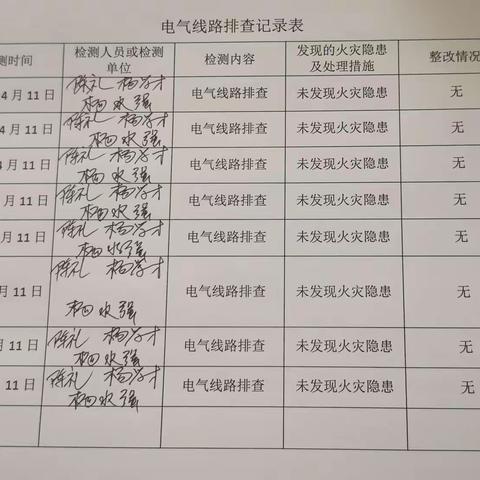 电气线路排查记录表
测时间 检测人员或检测单位 检测内容 发现的火灾隐患及处理措施 整改情况
4月11日 陈礼 杨学才 电气线路排查 未发现火灾隐患 无
4月11日 陈礼 杨学才 电气线路排查 未发现火灾隐患 无
4月11日 陈礼 杨学才 电气线路排查 未发现火灾隐患 无
月11日 陈礼 杨学才 电气线路排查 未发现火灾隐患 无
月11日 陈礼 杨学才 电气线路排查 未发现火灾隐患 无
月11日 陈礼 杨学才 电气线路排查 未发现火灾隐患 无
月11日 陈礼 杨学才 电气线路排查 未发现火灾隐患 无
11日 陈礼 杨学才 电气线路排查 未发现火灾隐患 无